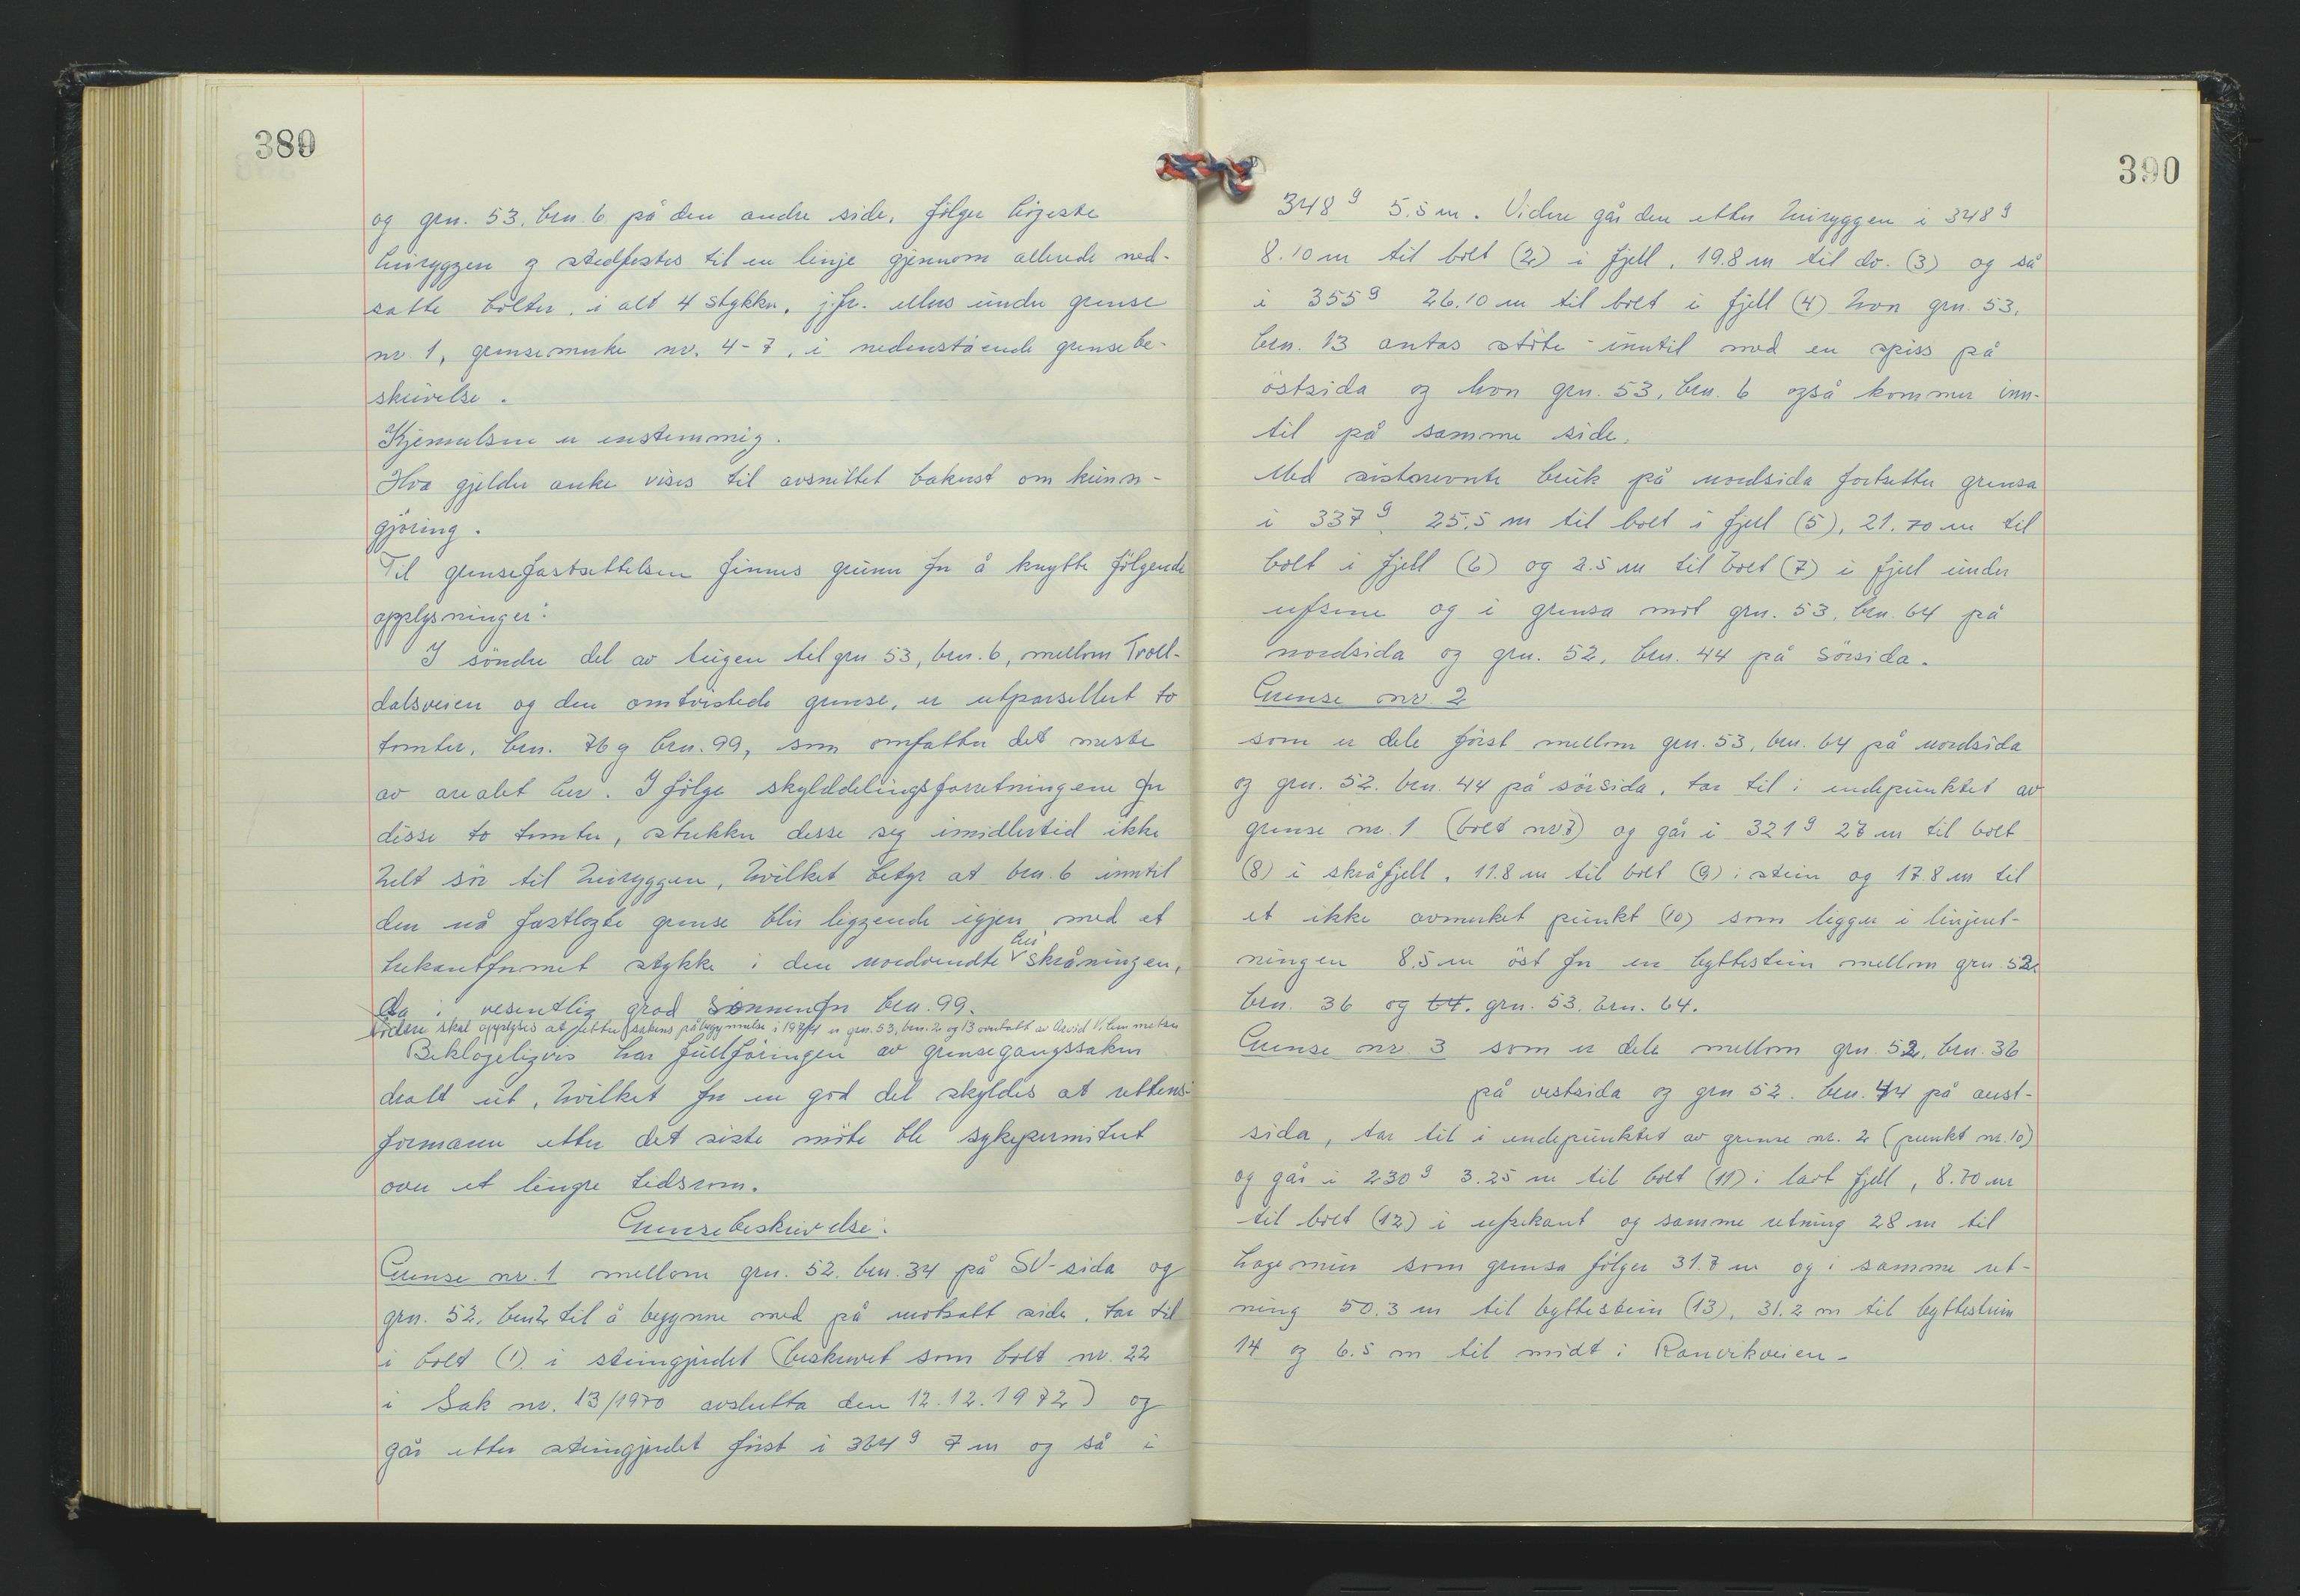 389
og grn. 53, brn. 6 på den andre side, følger høgeste
heiryggen og stedfestes til en linje gjennom allerede ned-
satte bolter, i alt 4 stykker, jfr. ellers under grense
nr. 1, grensemerke nr. 4-7, i nedenstående grensebe-
skrivelse.
Kjennelsen er enstemmig.
Hva gjelder anke vises til avsnittet bakerst om kunn-
gjøring.
Til grensefastsettelsen finnes grunn for å knytte følgende
opplysninger:
I søndre del av teigen til grn. 53, brn. 6, mellom Troll-
dalsveien og den omtvistede grense, er utparsellert to
tomter, brn. 76 og brn. 99, som omfatter det meste
av arealet her. I følge skylddelingsforretningene for
disse to tomter, strekker desse seg imidlertid ikke
helt sør til heiryggen, hvilket betyr at brn. 6 inntil
den nå fastlegte grense blir liggende igjen med et
trekantformet stykke i den nordvendte hei skråningen,
da i vesentlig grad sønnenfor brn. 99.
Videre skal opplyses at etter sakens påbegynnelse i 1974 er grn. 53, brn. 2 og 13 overtatt av Arvid V. Emmetsen
Beklageligvis har fullføringen av grensegangssaken
dratt ut, hvilket for en god del skyldes at rettens
formann etter det siste møte ble sykepermitert
over et lengre tidsrom.
Grensebeskrivelse:
Grense nr. 1 mellom grn. 52, brn. 34 på SV-sida og
grn. 52, brn 2 til å begynne med på motsatt side, tar til
i bolt (1) i steingjerdet (beskrevet som bolt nr. 22
i Sak nr. 13/1970 avslutta den 12.12.1972) og
går etter steingjerdet først i 364 g 7 m og så i
390
348 g 5.5 m. Videre går den etter heiryggen i 348 g
8.10 m til bolt (2) i fjell, 19.8 m til do. (3) og så
i 355 g 26.10 m til bolt i fjell (4) hvor grn. 53,
brn. 13 antas støte inntil med en spiss på
østsida og hvor grn. 53, brn. 6 også kommer inn-
til på samme side.
Med sistnevnte bruk på nordsida fortsetter grensa
i 337 g 25.5 m til bolt i fjell (5), 21.70 m til
bolt i fjell (6) og 2.5 m til bolt (7) i fjell under
ufsene og i grensa mot grn. 53, brn. 64 på
nordsida og grn. 52, brn. 44 på sørsida.
Grense nr. 2
som er dele først mellom grn. 53, brn. 64 på nordsida
og grn. 52. brn. 44 på sørsida, tar til i endepunktet av
grense nr. 1 (bolt nr 7) og går i 321 g 27 m til bolt
(8) i skråfjell, 11.8 m til bolt (9) i stein og 17.8 m til
et ikke avmerket punkt (10) som ligger i linjeret-
ningen 8.5 m øst for en byttestein mellom grn. 52
brn. 36 og 64. grn. 53. brn. 64.
Grense nr. 3 som er dele mellom grn. 52, brn. 36
på vestsida og grn 52. brn. 44 på aust-
sida, tar til i endepunktet av grense nr. 2 (punkt nr. 10)
og går i 230 g 3.25 m til bolt (11) i lavt fjell, 8.70 m
til bolt (12) i ufsekant og samme retning 28 m til
hagemur som grensa følger 31.7 m og i samme ret-
ning 50.3 m til byttestein (13), 31.2 m til byttestein
14 og 6.5 m til midt i Ranvikveien.